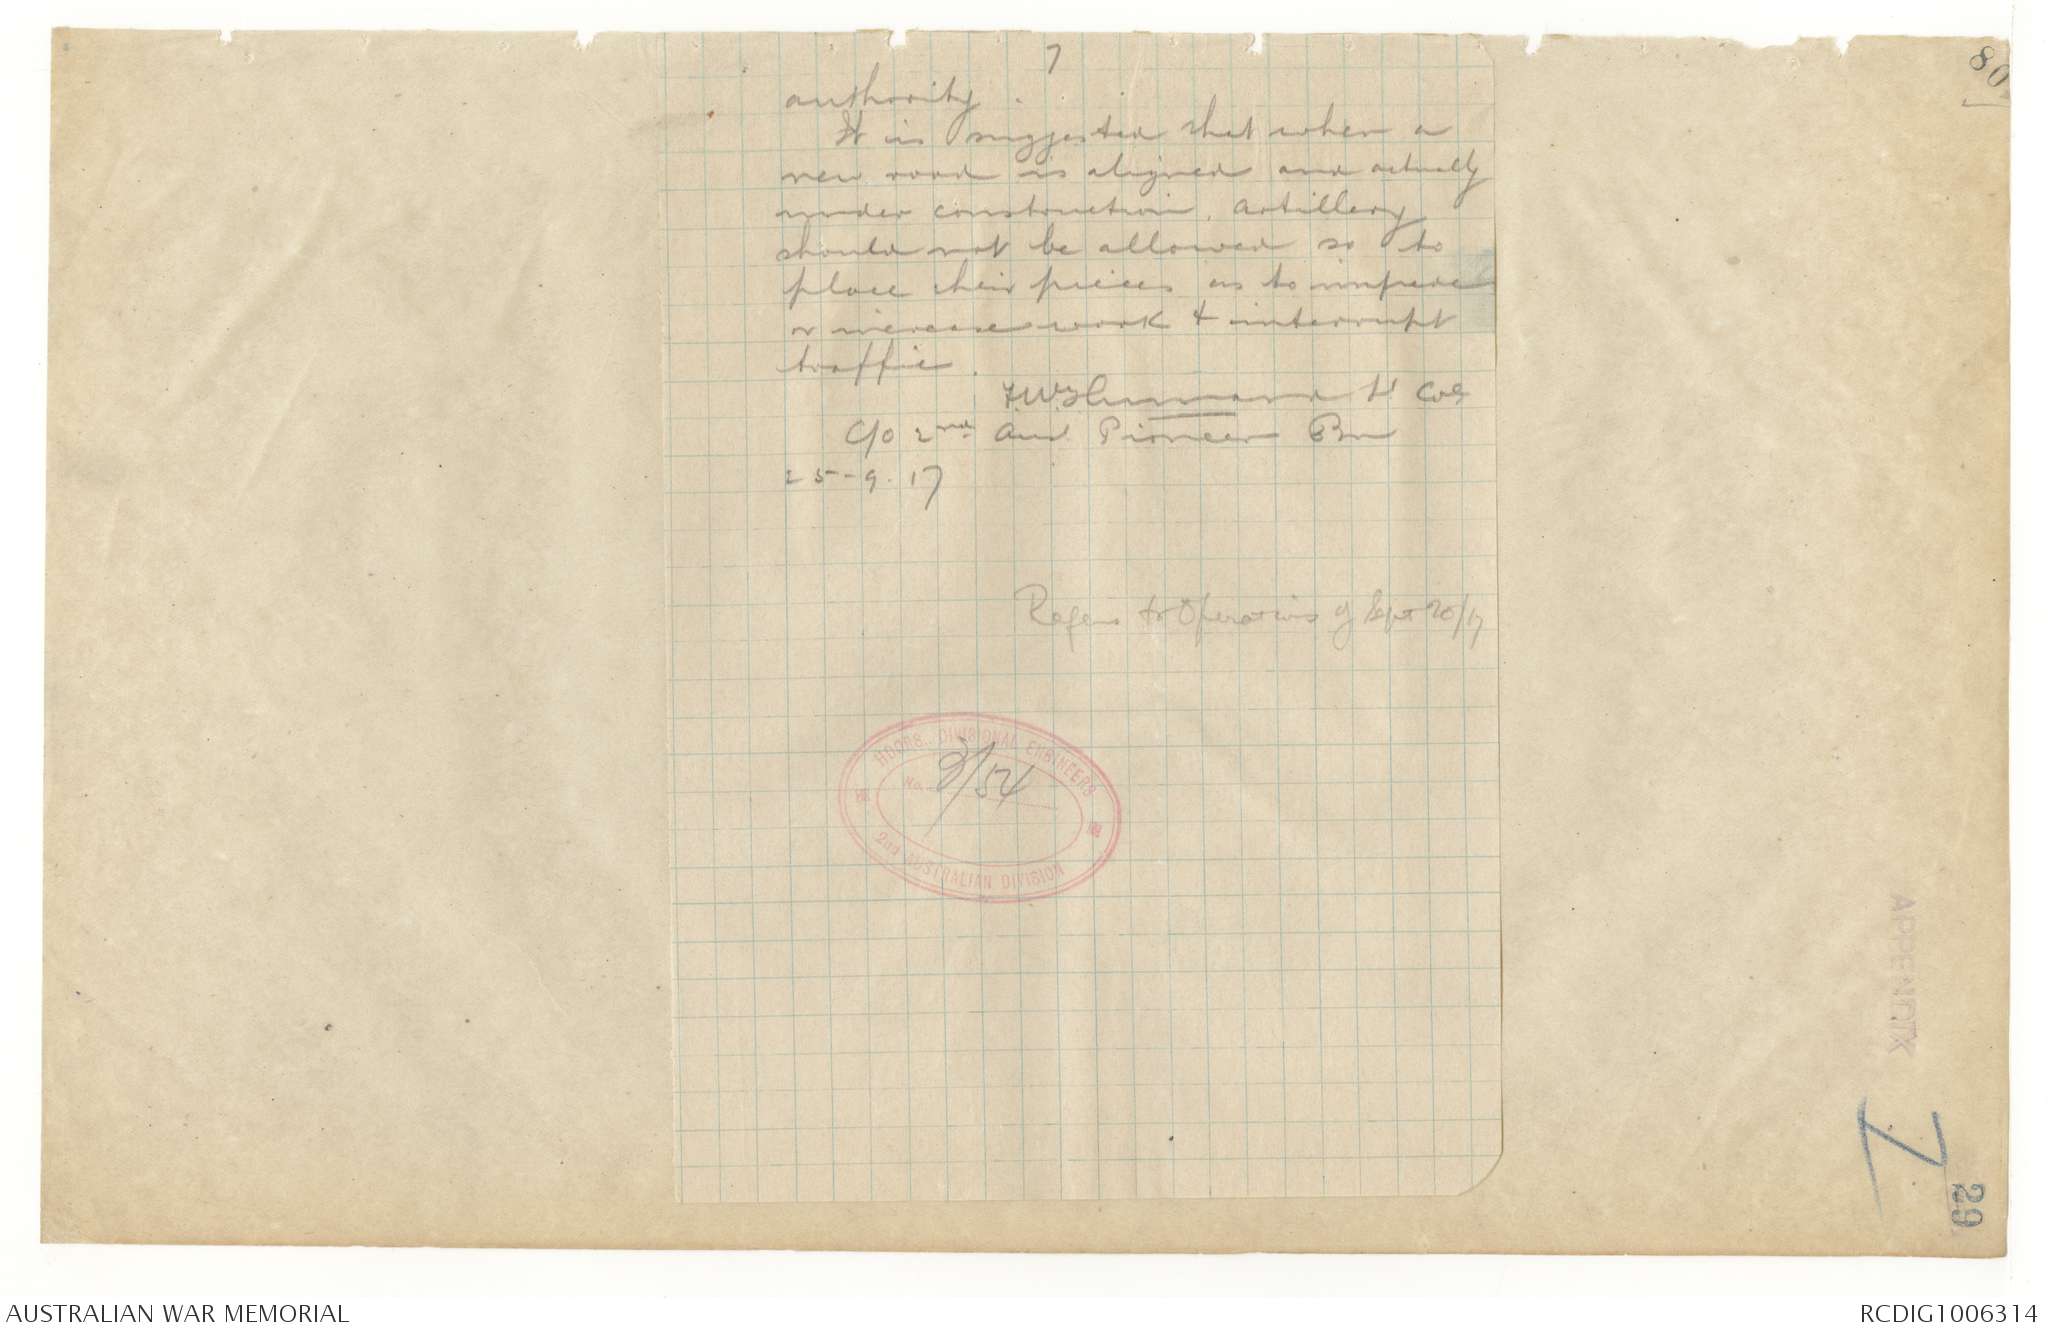 7
80
authority.
It is suggested that when a
new road is aligned and actually
under construction, artillery
should not be allowed so to
place their pieces as to impede
or increase work & interrupt
traffic.
Lt Col
C/o 2nd Aust Pioneer Bn
25-9.17
Refers to Operations of Sept 20/17
HDQRS. DIVISIONAL ENGINEERS
No. 3/54
2nd AUSTRALIAN DIVISION
APPENDIX
7
29
AUSTRALIAN WAR MEMORIAL
RCDIG1006314